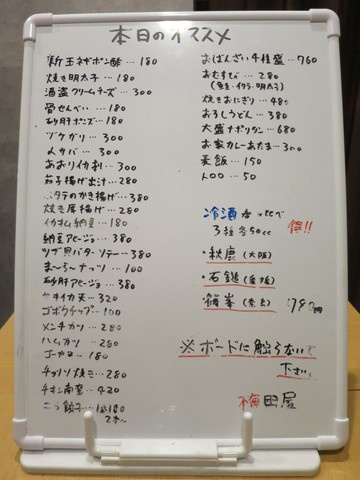 本日のオススメ
新玉ネギポン酢…180
焼き明太子…180
酒盗クリームチーズ…300
骨せんべい…180
砂肝ポンズ…180
ヅケガリ…300
〆サバ…300
あおりイカ刺…300
茄子揚げ出汁…280
ホタテのかき揚げ…380
焼き厚揚げ…280
イカオム納豆…180
納豆アヒージョ…380
ツブ貝バターソテー…380
ま〜ろ〜ナッツ…100
砂肝アヒージョ…380
ヤキイカ天…320
ゴボウチップ…100
メンチカツ…180
ハムカツ…180
ゴーヤ…180
チョリソ焼き…280
チキン南蛮…420
ごう餃子…1コ180
2コ〜
おばんざい4種盛…760
おむすび…280
(鮭・イクラ・明太子)
焼きおにぎり…480
おろしうどん…380
大盛ナポリタン…680
お家カレーあたま…300
麦飯…150
トロロ…50
冷酒 呑っ比べ
3種各50cc 得!!
・秋鹿(大阪)
・石鎚(愛媛)
・篠峯(奈良) 790円
※ボードに触らないで
下さい。
梅田屋